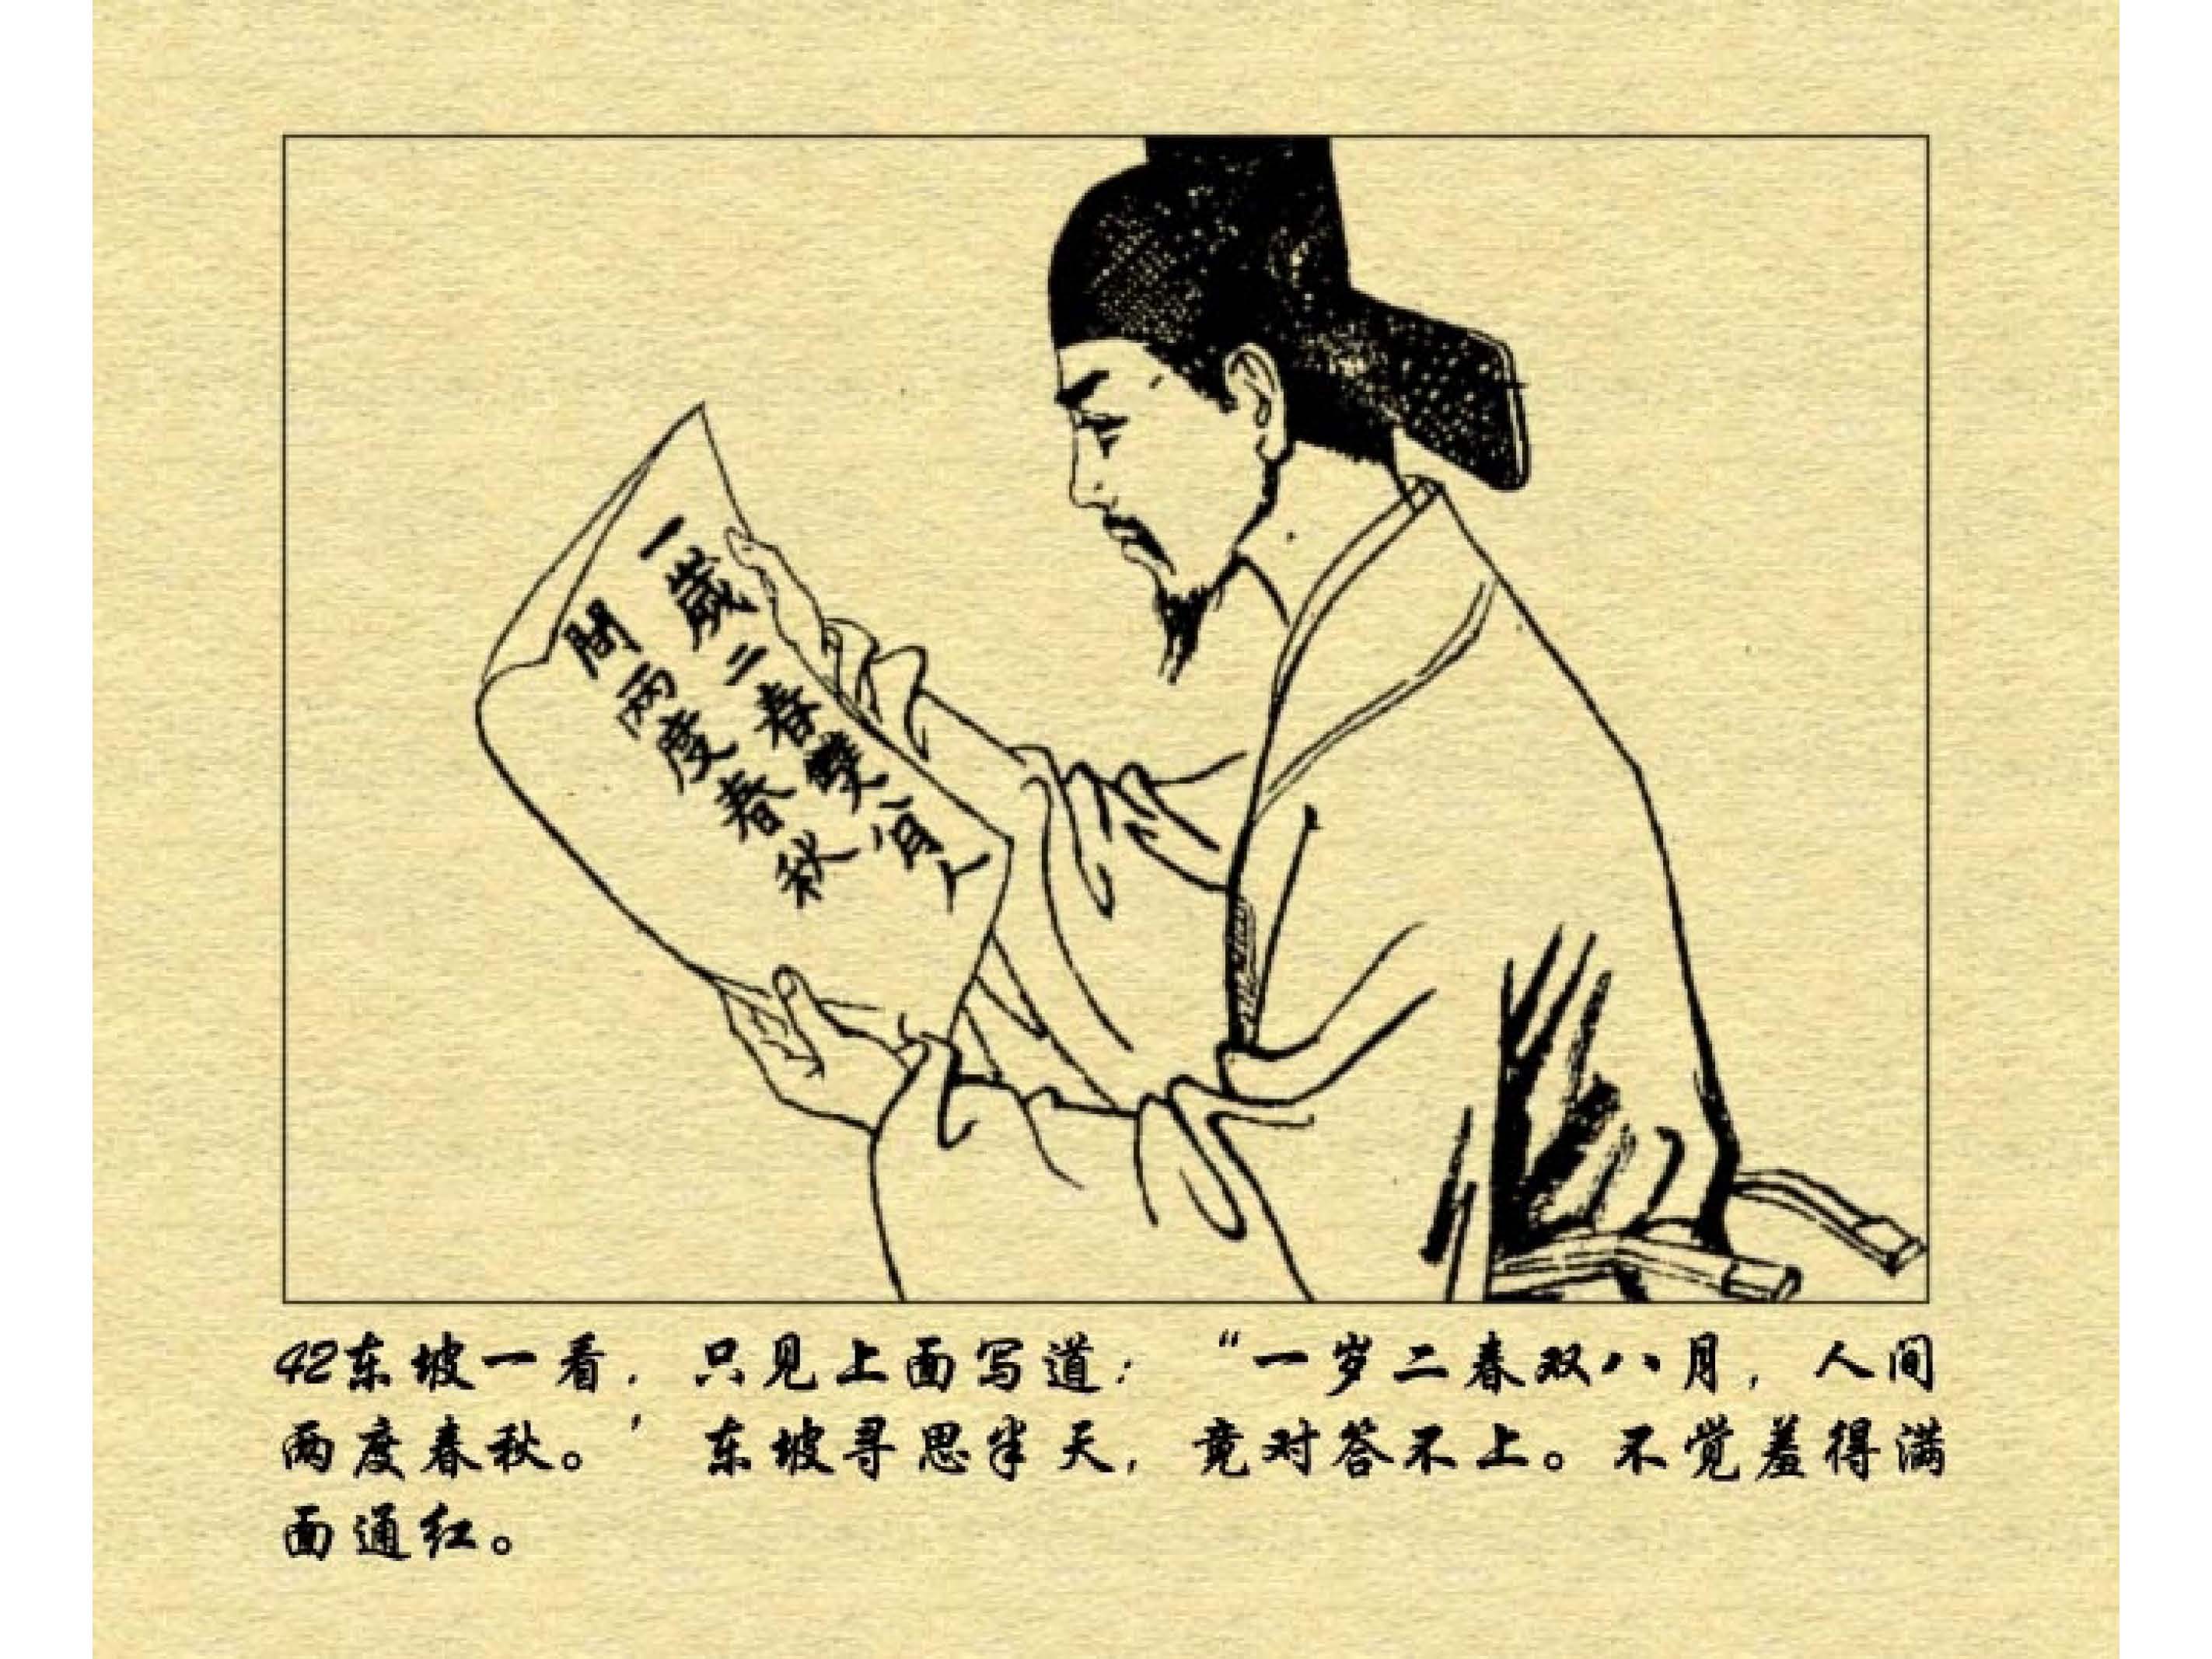 一歲二春雙八月人
間兩度春秋
42东坡一看，只见上面写道：“一岁二春双八月，人间
两度春秋。’东坡寻思半天，竟对答不上。不觉羞得满
面通红。